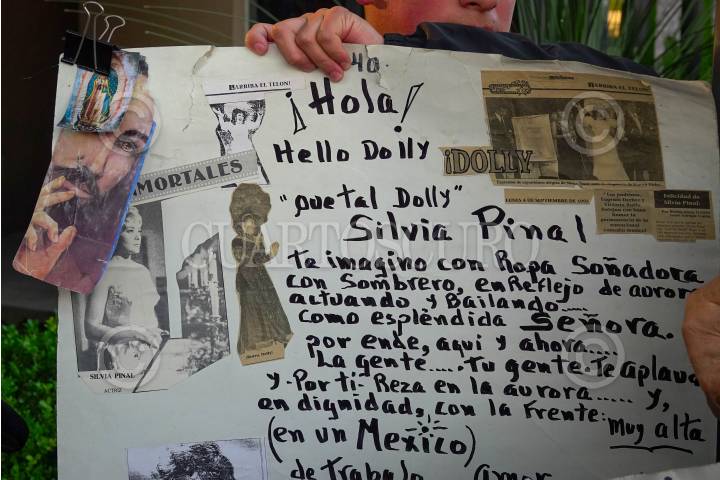 40
¡Hola!
Hello Dolly
"puetal Dolly"
Silvia Pinal
te imagino con Ropa Soñadora
con Sombrero, en Reflejo de auror
actuando y Bailando....
como esplèndida Señora.
por ende, aqui y ahora....
La gente.... tu gente. te Aplaud
y. Por ti. Reza en la aurora..... y,
en dignidad, con la Frente:
muy alta
(en un Mexico)
de trabajo amor
¡ARRIBA EL TELON!
MORTALES
SILVIA PINAL
ACTRIZ
¡ARRIBA EL TELON!
¡DOLLY
LUNES 9 DE SEPTIEMBRE DE
Felicidad de
Silvia Pinal:
CUARTOSCURO